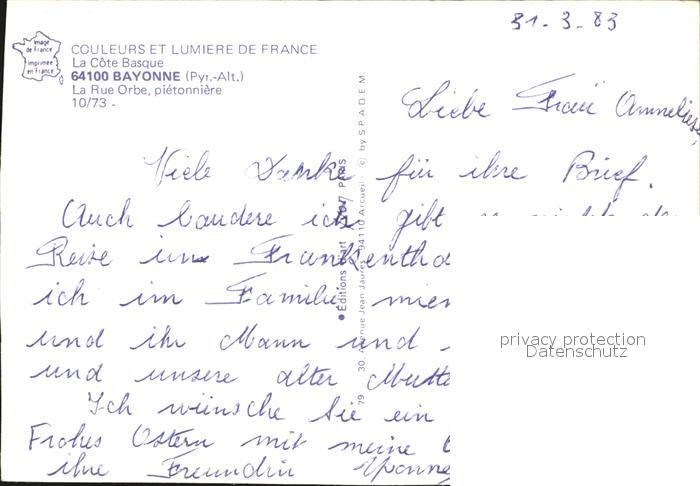 31-3-83
Image
de France
Imprimée
en France
COULEURS ET LUMIERE DE FRANCE
La Côte Basque
64100 BAYONNE (Pyr.-Atl.)
La Rue Orbe, piétonnière
10/73 -
Liebe Fraü Anneliese,
Viele Danke für ihre Brief.
Auch ich gibt
Reise im Frankentha
ich im Familie mien
und ihr Mann und
und unsere alter Mutte
Ich wünsche Sie ein
Frohes Ostern mit meine
ihre Freundin Yvonne
Editions d'art PARIS
79 30, Avenue Jean Jaurès, 94110 Arcueil © by SPADEM
privacy protection
Datenschutz